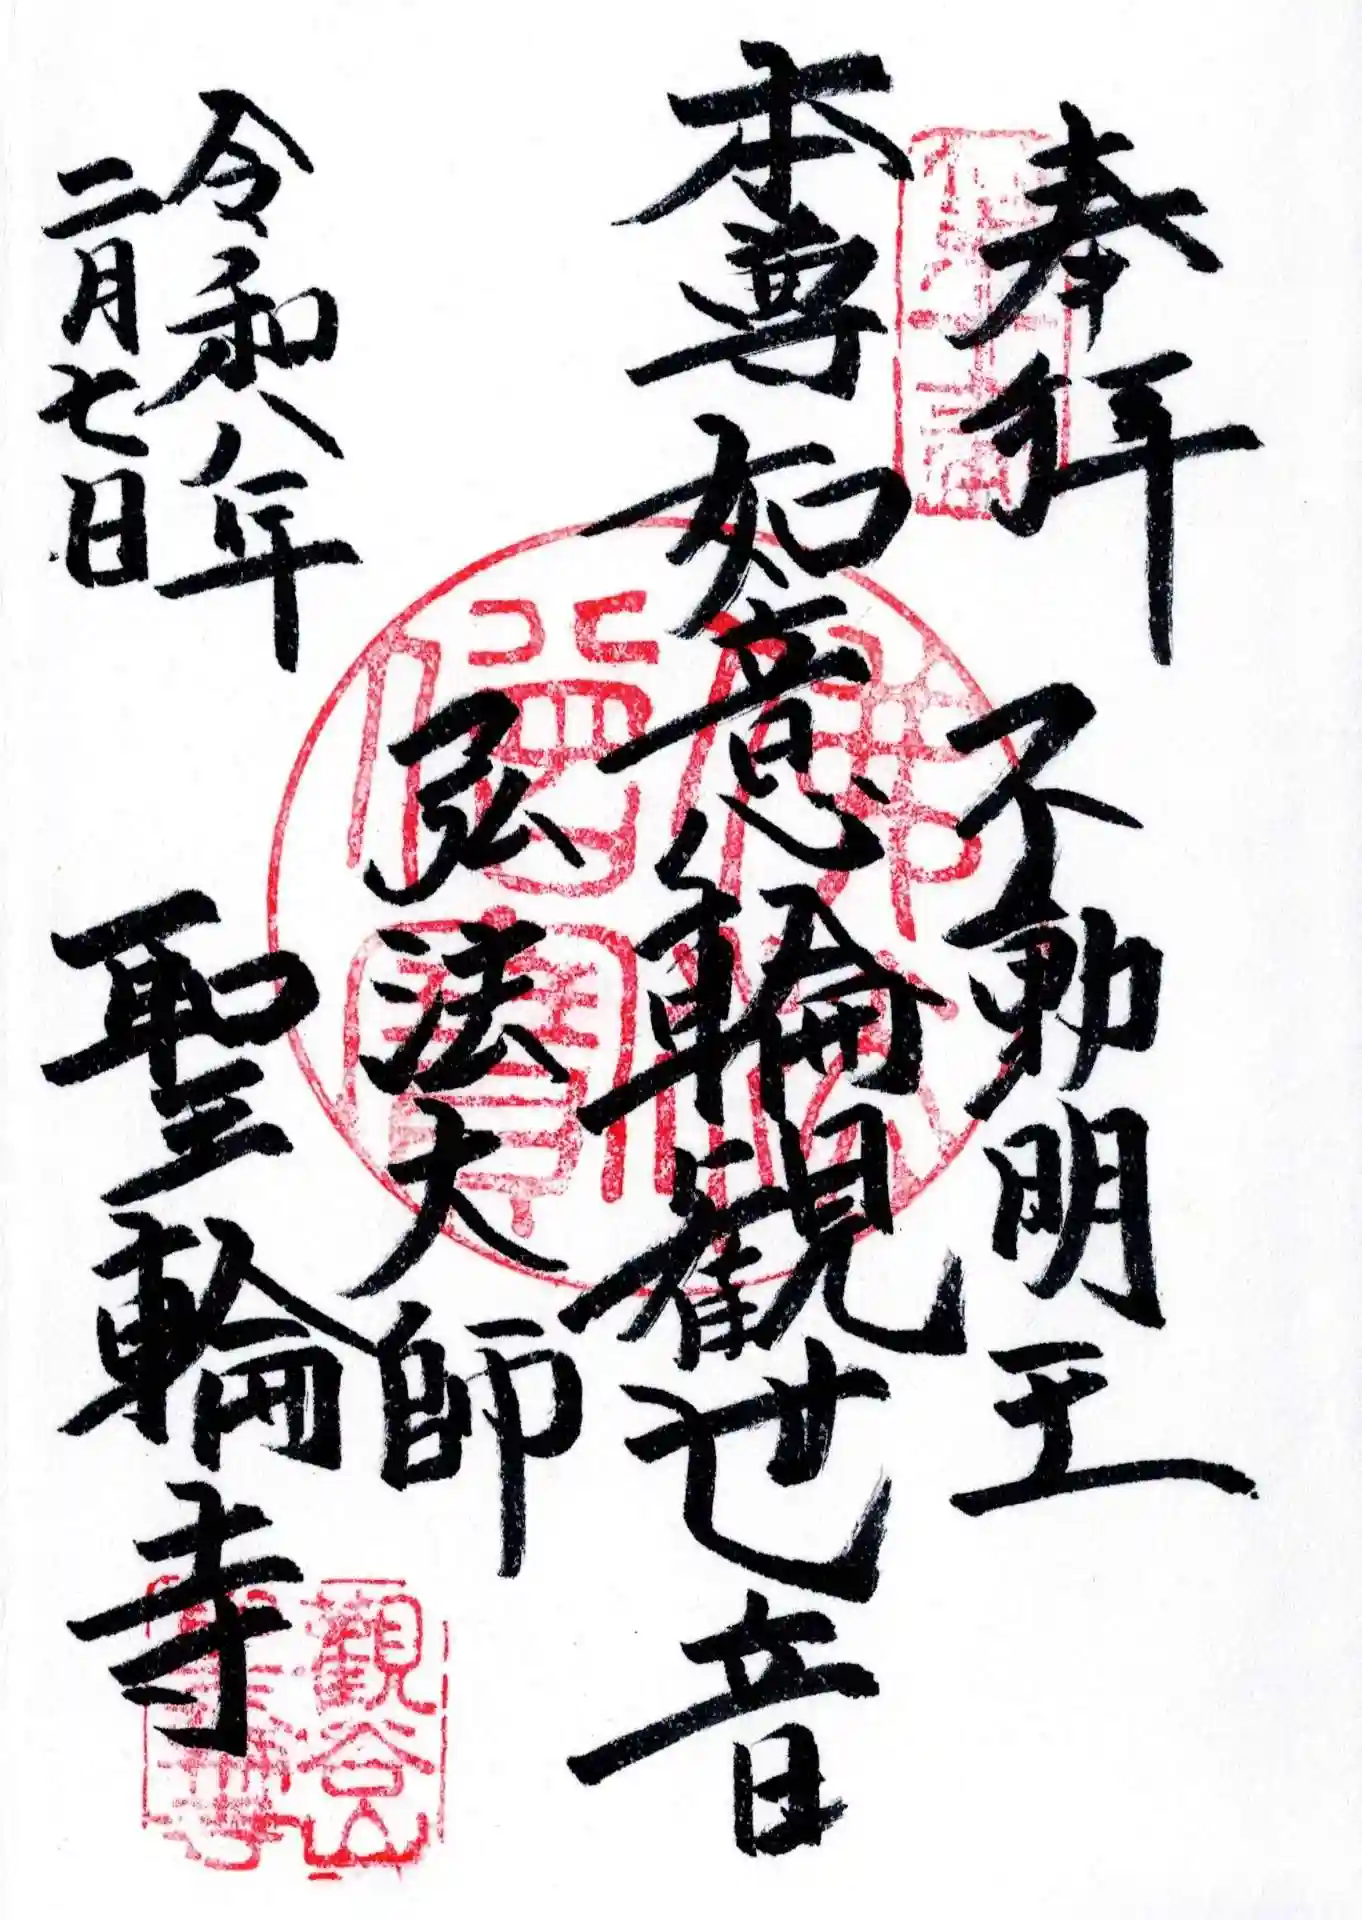 奉拝
不動明王
本尊如意輪観世音
弘法大師
令和八年
二月七日
聖輪寺
観谷山